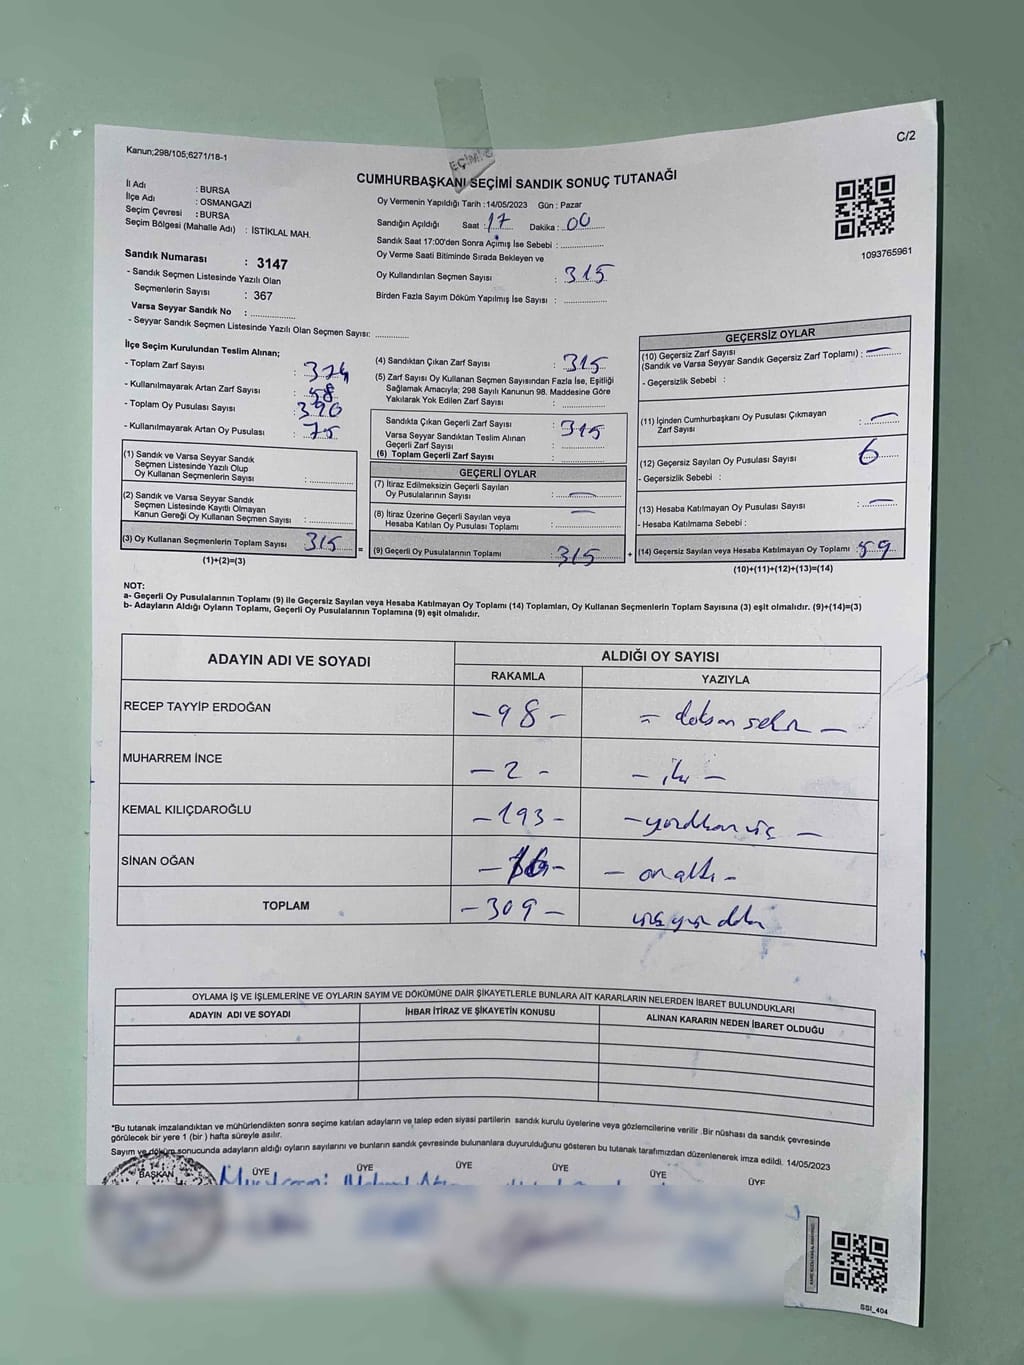 C/2
Kanun;298/105;6271/18-1
CUMHURBAŞKANI SEÇİMİ SANDIK SONUÇ TUTANAĞI
İl Adı : BURSA
İlçe Adı : OSMANGAZİ
Seçim Çevresi : BURSA
Seçim Bölgesi (Mahalle Adı) : İSTİKLAL MAH.
Sandık Numarası : 3147
- Sandık Seçmen Listesinde Yazılı Olan
Seçmenlerin Sayısı : 367
Varsa Seyyar Sandık No :
- Seyyar Sandık Seçmen Listesinde Yazılı Olan Seçmen Sayısı:
Oy Vermenin Yapıldığı Tarih :14/05/2023 Gün : Pazar
Sandığın Açıldığı Saat : 17 Dakika : 00
Sandık Saat 17:00'den Sonra Açılmış İse Sebebi :
Oy Verme Saati Bitiminde Sırada Bekleyen ve
Oy Kullandırılan Seçmen Sayısı : 315
Birden Fazla Sayım Döküm Yapılmış İse Sayısı :
1093765961
İlçe Seçim Kurulundan Teslim Alınan;
- Toplam Zarf Sayısı :
- Kullanılmayarak Artan Zarf Sayısı : 58
- Toplam Oy Pusulası Sayısı : 390
- Kullanılmayarak Artan Oy Pusulası : 75
(1) Sandık ve Varsa Seyyar Sandık
Seçmen Listesinde Yazılı Olup
Oy Kullanan Seçmenlerin Sayısı :
(2) Sandık ve Varsa Seyyar Sandık
Seçmen Listesinde Kayıtlı Olmayan
Kanun Gereği Oy Kullanan Seçmen Sayısı :
(3) Oy Kullanan Seçmenlerin Toplam Sayısı 315
(1)+(2)=(3)
(4) Sandıktan Çıkan Zarf Sayısı : 315
(5) Zarf Sayısı Oy Kullanan Seçmen Sayısından Fazla İse, Eşitliği
Sağlamak Amacıyla; 298 Sayılı Kanunun 98. Maddesine Göre
Yakılarak Yok Edilen Zarf Sayısı :
Sandıkta Çıkan Geçerli Zarf Sayısı : 315
Varsa Seyyar Sandıktan Teslim Alınan
Geçerli Zarf Sayısı :
(6) Toplam Geçerli Zarf Sayısı :
GEÇERLİ OYLAR
(7) İtiraz Edilmeksizin Geçerli Sayılan
Oy Pusulalarının Sayısı : —
(8) İtiraz Üzerine Geçerli Sayılan veya
Hesaba Katılan Oy Pusulası Toplamı : —
(9) Geçerli Oy Pusulalarının Toplamı : 315
GEÇERSİZ OYLAR
(10) Geçersiz Zarf Sayısı
(Sandık ve Varsa Seyyar Sandık Geçersiz Zarf Toplamı) : —
- Geçersizlik Sebebi :
(11) İçinden Cumhurbaşkanı Oy Pusulası Çıkmayan
Zarf Sayısı : —
(12) Geçersiz Sayılan Oy Pusulası Sayısı : 6
- Geçersizlik Sebebi :
(13) Hesaba Katılmayan Oy Pusulası Sayısı : —
- Hesaba Katılmama Sebebi :
(14) Geçersiz Sayılan veya Hesaba Katılmayan Oy Toplamı : 59
(10)+(11)+(12)+(13)=(14)
NOT:
a- Geçerli Oy Pusulalarının Toplamı (9) ile Geçersiz Sayılan veya Hesaba Katılmayan Oy Toplamı (14) Toplamları, Oy Kullanan Seçmenlerin Toplam Sayısına (3) eşit olmalıdır. (9)+(14)=(3)
b- Adayların Aldığı Oyların Toplamı, Geçerli Oy Pusulalarının Toplamına (9) eşit olmalıdır.
ADAYIN ADI VE SOYADI ALDIĞI OY SAYISI
RAKAMLA YAZIYLA
RECEP TAYYİP ERDOĞAN – 98 – = doksan sekiz –
MUHARREM İNCE – 2 – – iki –
KEMAL KILIÇDAROĞLU – 193 – – yüzdoksan üç –
SİNAN OĞAN – 16 – – on altı –
TOPLAM – 309 – üç yüz dokuz
OYLAMA İŞ VE İŞLEMLERİNE VE OYLARIN SAYIM VE DÖKÜMÜNE DAİR ŞİKAYETLERLE BUNLARA AİT KARARLARIN NELERDEN İBARET BULUNDUKLARI
ADAYIN ADI VE SOYADI İHBAR İTİRAZ VE ŞİKAYETİN KONUSU ALINAN KARARIN NEDEN İBARET OLDUĞU
*Bu tutanak imzalandıktan ve mühürlendikten sonra seçime katılan adayların ve talep eden siyasi partilerin sandık kurulu üyelerine veya gözlemcilerine verilir. Bir nüshası da sandık çevresinde
görülecek bir yere 1 (bir ) hafta süreyle asılır.
Sayım ve döküm sonucunda adayların aldığı oyların sayılarını ve bunların sandık çevresinde bulunanlara duyurulduğunu gösteren bu tutanak tarafımızdan düzenlenerek imza edildi. 14/05/2023
BAŞKAN ÜYE ÜYE ÜYE ÜYE ÜYE ÜYE
SSI_404